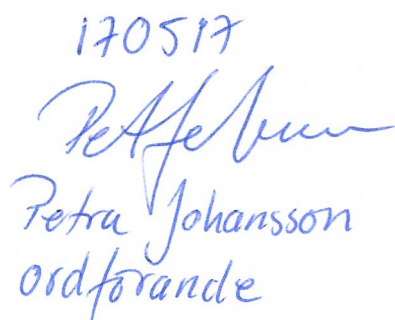 170517
Petra Johansson
ordförande